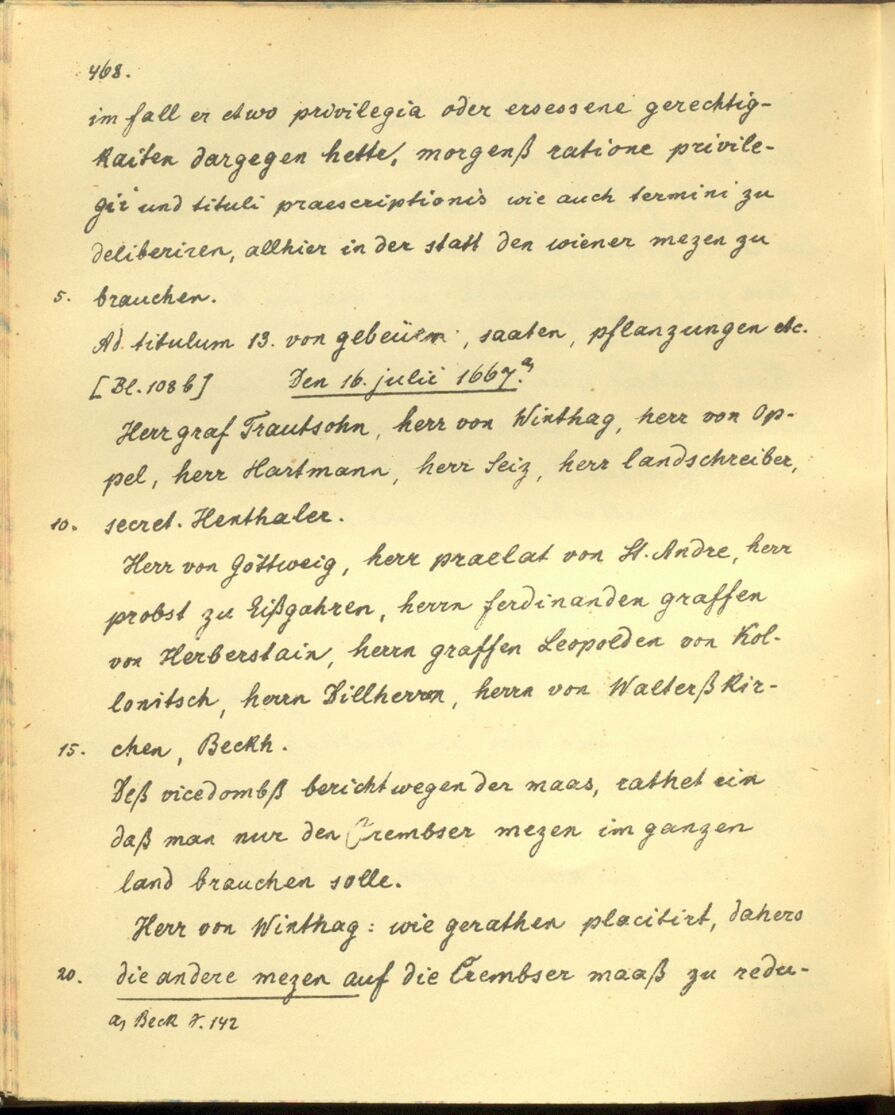 468.
im fall er etwo privilegia oder ersessene gerechtig-
kaiten dargegen hette, morgenß ratione privile-
gii und tituli praescriptionis wie auch termini zu
deliberiren, allhier in der statt den wiener mezen zu
5. brauchen.
Ad titulum 13. von gebeüern, saaten, pflanzungen etc.
[Bl. 108 b] Den 16. julii 1667. a)
Herr graf Trautsohn, herr von Winthag, herr von Op-
pel, herr Hartmann, herr Seiz, herr landschreiber,
10. secret. Henthaler.
Herr von Göttweig, herr praelat von St. Andre, herr
probst zu Eißgahren, herrn ferdinanden graffen
von Herberstain, herrn graffen Leopolden von Kol-
lonitsch, herrn Dillherrn, herrn von Walterßkir-
15. chen, Beckh.
Deß vicedombß bericht wegen der maas, rathet ein
daß man nur den Crembser mezen im ganzen
land brauchen solle.
Herr von Winthag: wie gerathen placitirt, dahero
20. die andere mezen auf die Crembser maaß zu redu-
a) Beck f. 142